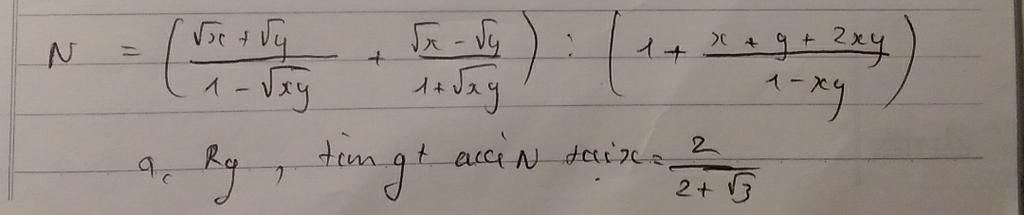 N = ( (√x + √y)/(1 - √xy) + (√x - √y)/(1 + √xy) ) : ( 1 + (x + y + 2xy)/(1 - xy) )
a, Rg, tìm gt của N tại x = 2/(2 + √3)